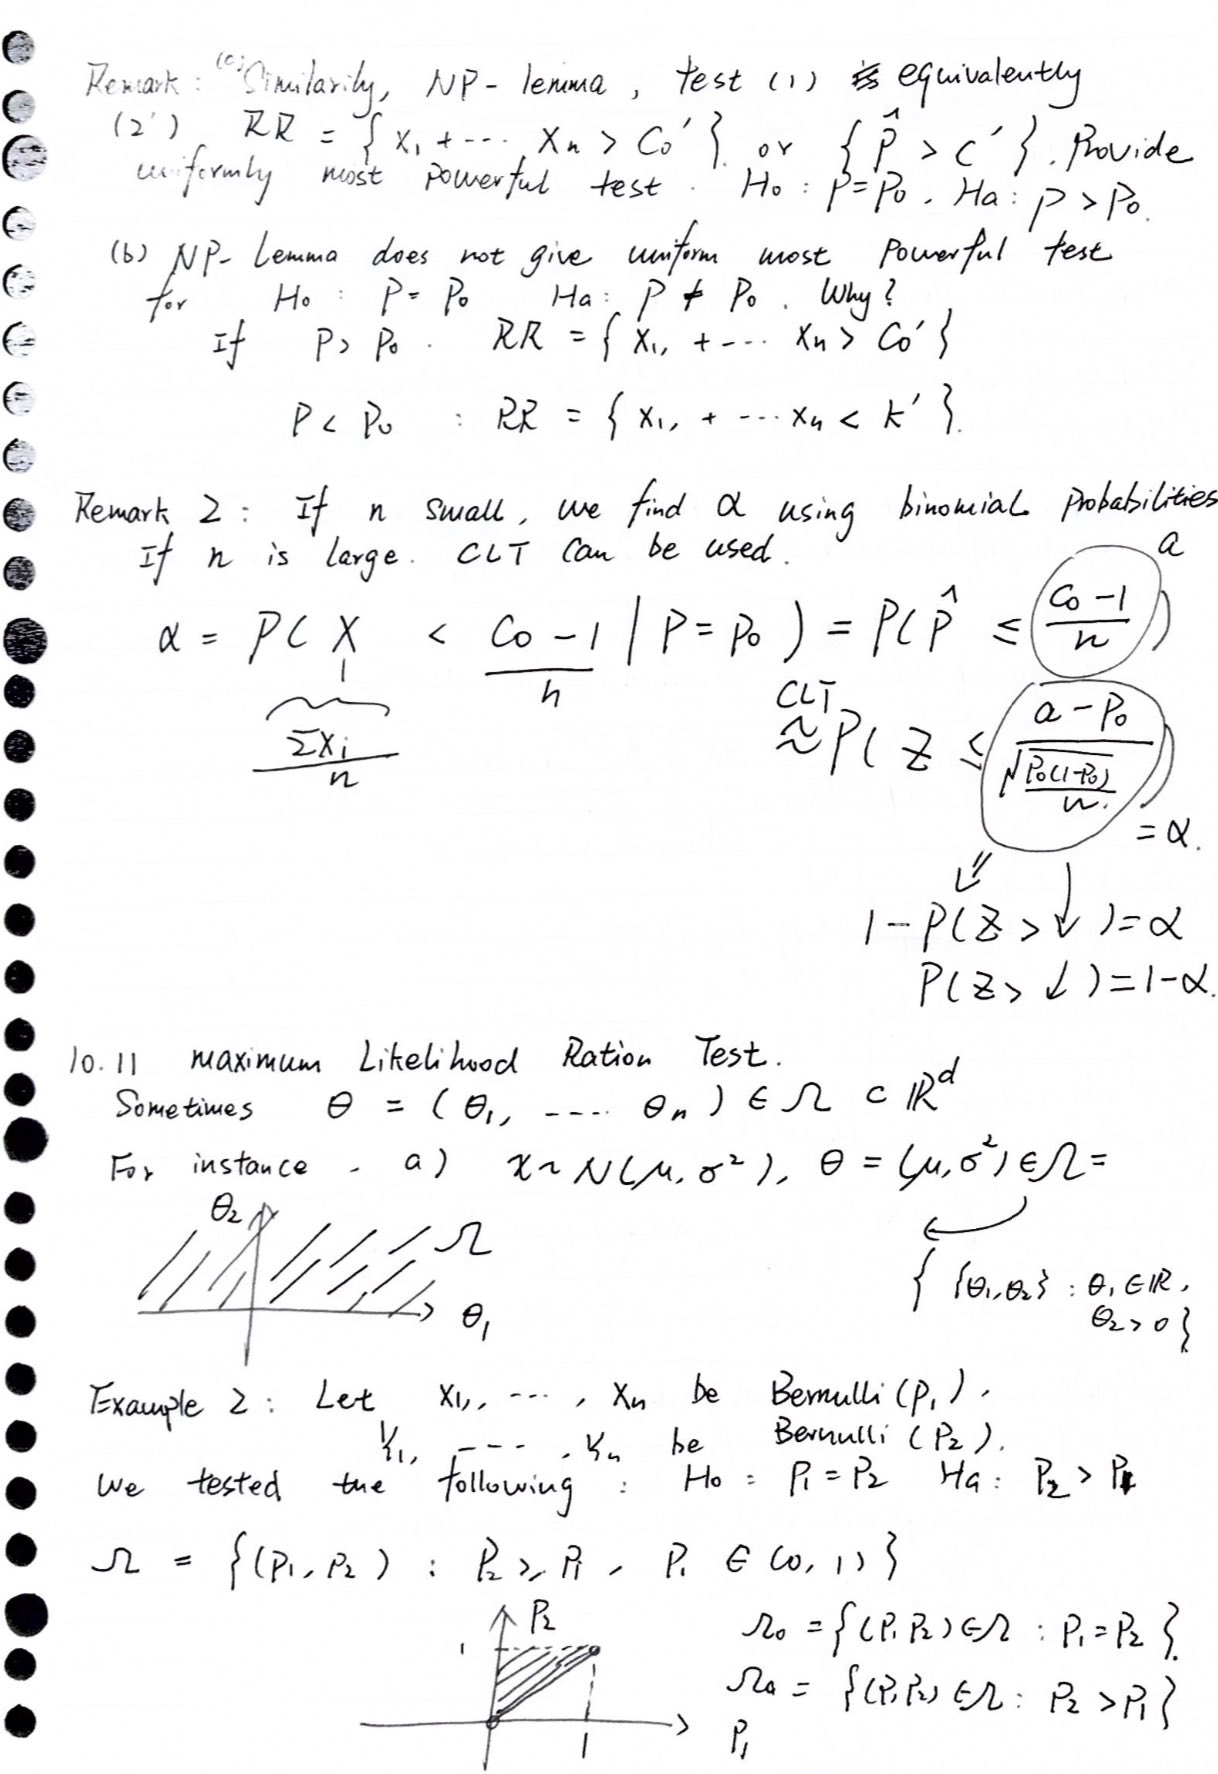 Remark : (c) Similarily, NP-lemma, test (1) is equivalently
(2') RR = { x₁ + --- Xn > Co' } or { p̂ > c' }. Provide
uniformly most powerful test. Ho : p=Po, Ha : p > Po.
(b) NP-Lemma does not give uniform most powerful test
for Ho : P = Po Ha : P ≠ Po. Why?
If P > Po. RR = { X₁, + --- Xn > Co' }
P < Po : RR = { X₁, + --- Xn < k' }.
Remark 2 : If n small, we find α using binomial probabilities
If n is large. CLT can be used.
α = P( X < (Co - 1)/n | P = Po ) = P( p̂ ≤ (Co - 1)/n ) a
ΣXi / n
CLT ≈ P( Z ≤ (a - Po) / √(Po(1-Po)/n) ) = α.
1 - P(Z > ↓ ) = α
P(Z > ↓ ) = 1-α.
10.11 maximum Likelihood Ration Test.
Sometimes θ = (θ₁, ---- θn) ∈ Ω ⊂ ℝᵈ
For instance - a) x ~ N(μ, σ²), θ = (μ, σ²) ∈ Ω =
{ {θ₁,θ₂} : θ₁ ∈ ℝ,
θ₂ > 0 }
θ₂ Ω
θ₁
Example 2 : Let X₁, ---, Xn be Bernulli (P₁),
Y₁, ---, Yn be Bernulli (P₂).
We tested the following : Ho : P₁ = P₂ Ha : P₂ > P₁
Ω = {(P₁, P₂) : P₂ ≥ P₁, Pi ∈ (0, 1)}
P₂
1
Ωo = {(P₁ P₂) ∈ Ω : P₁ = P₂ }.
Ωa = {(P₁,P₂) ∈ Ω : P₂ > P₁}
1 P₁